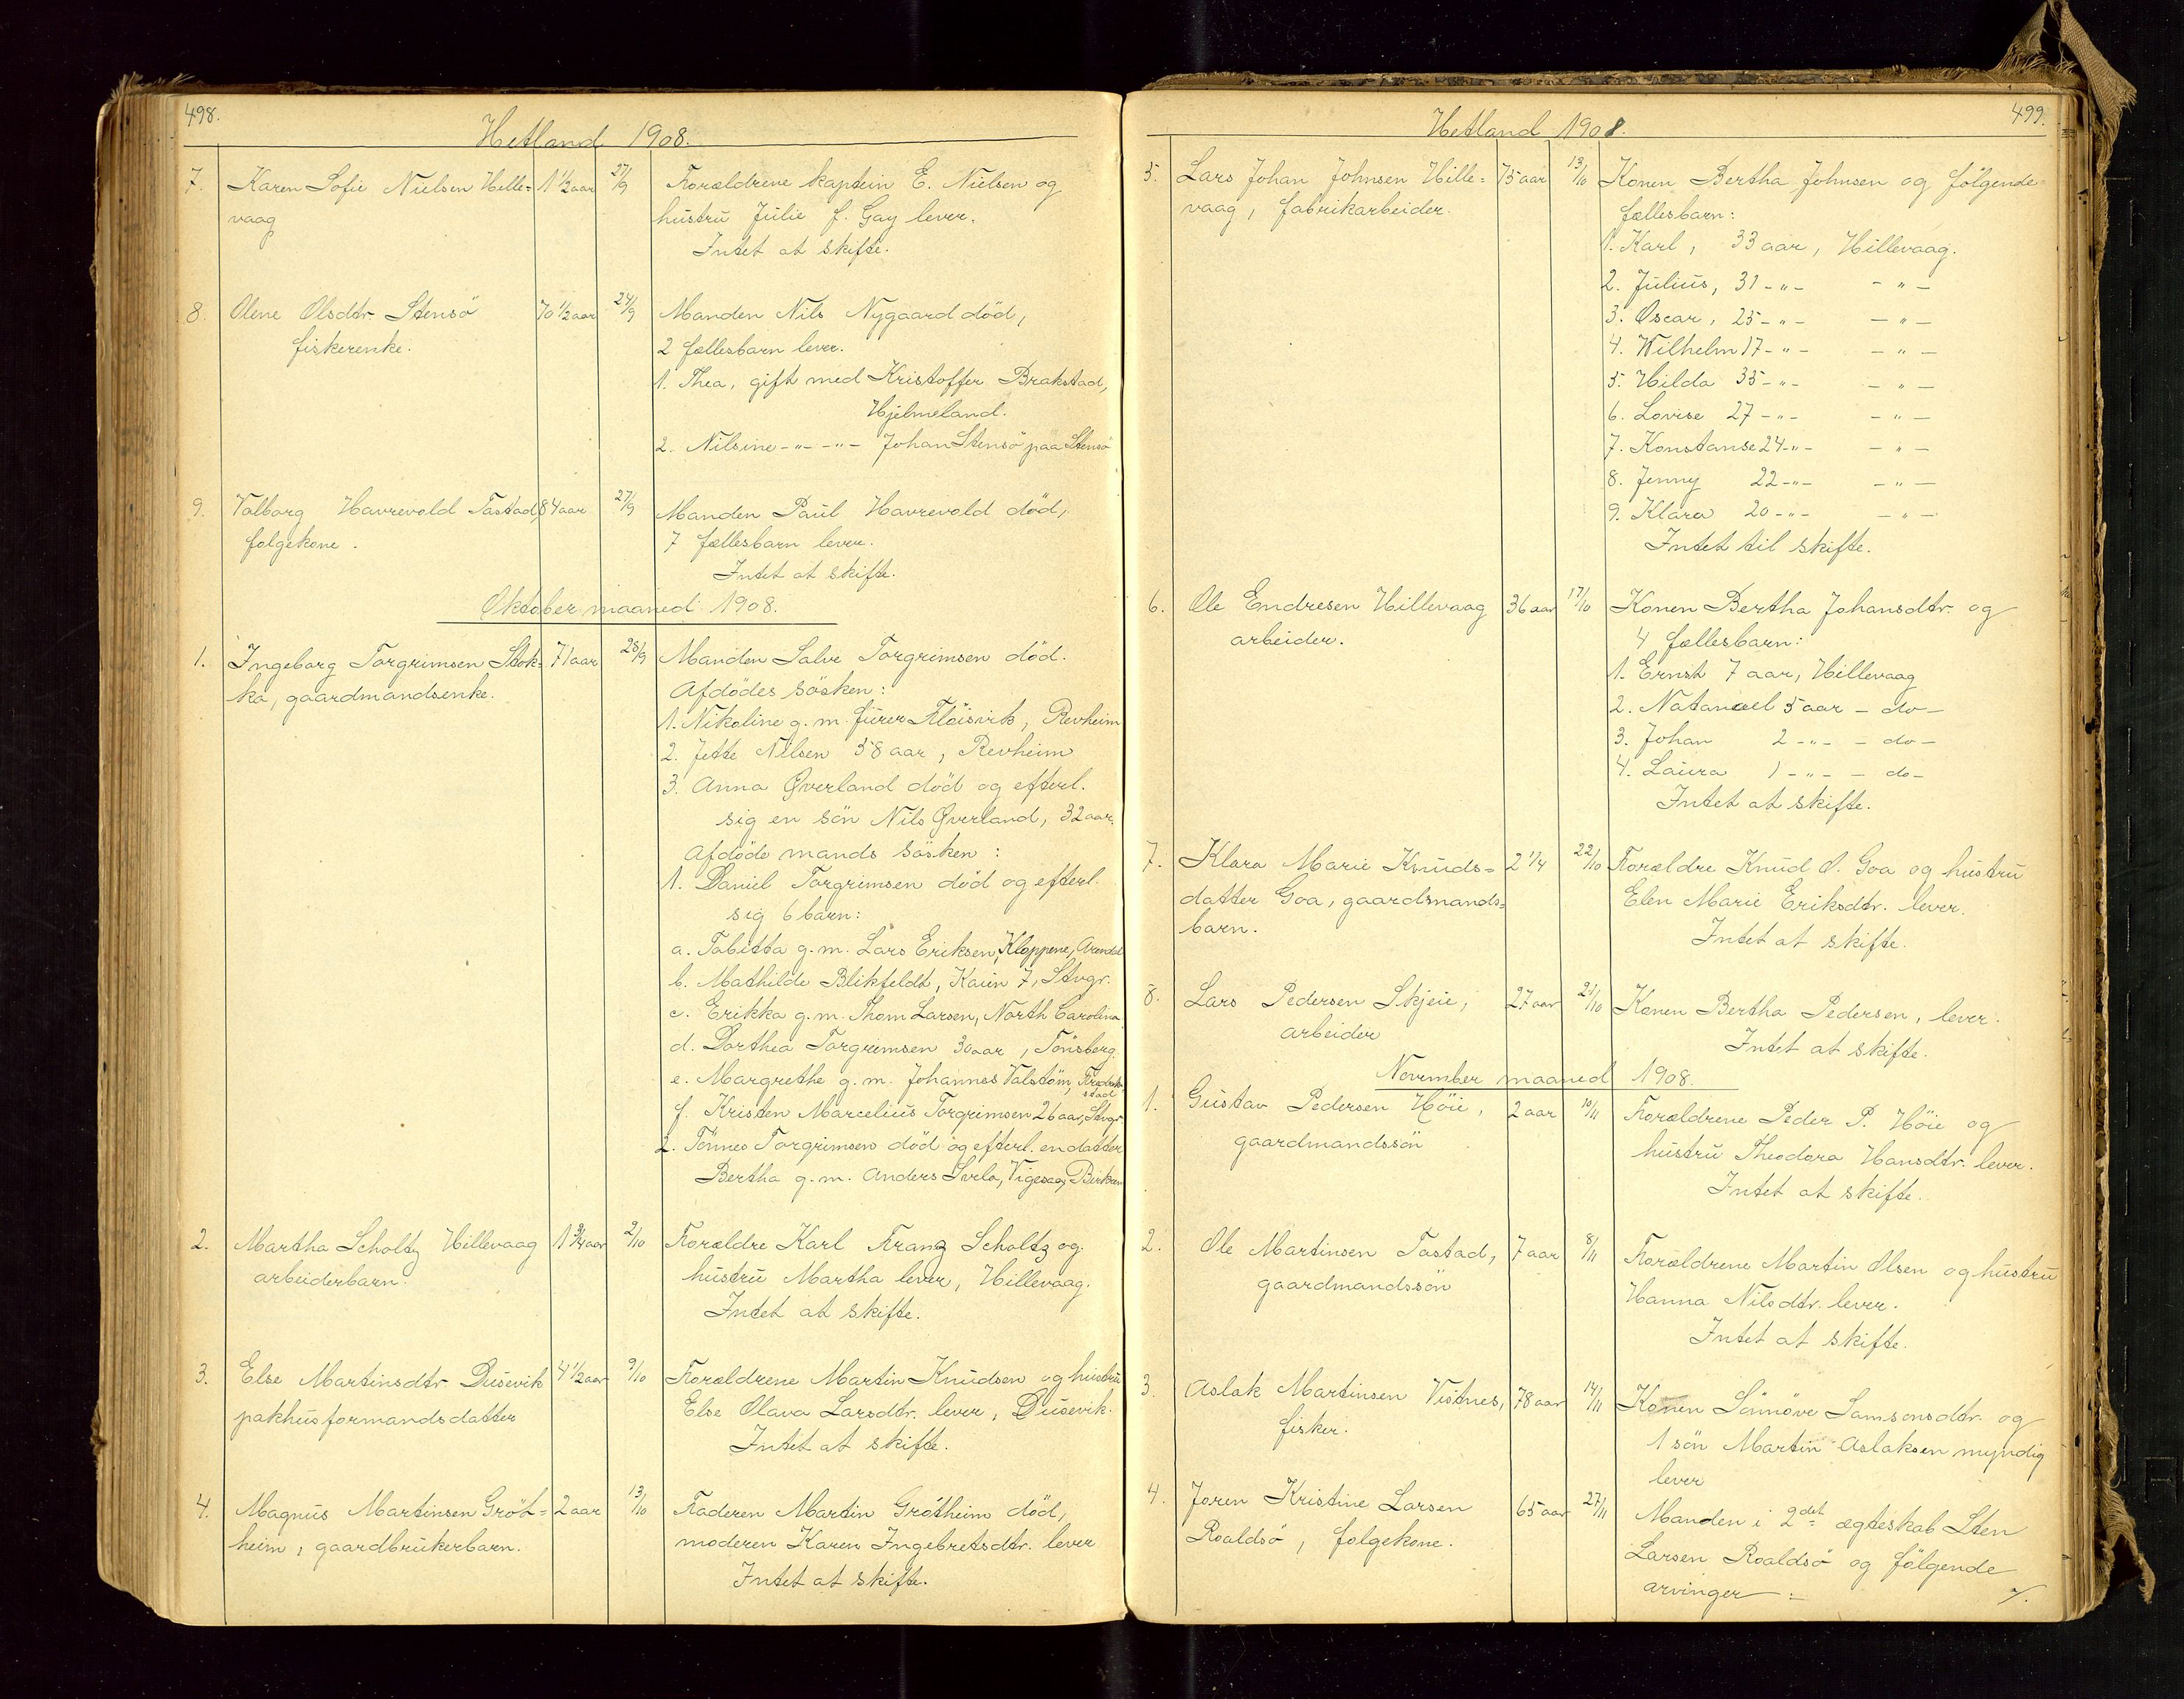 498.
Hetland 1908.
7. Karen Sofie Nielsen Hille= 1 1/2 aar 27/9 Forældrene kaptein E. Nielsen og
vaag hustru Julie f. Gay lever.
Intet at skifte.
8. Olene Olsdtr. Stensö 70 1/2 aar 24/9 Manden Nils Nygaard död,
fiskerenke. 2 fællesbarn lever.
1. Thea, gift med Kristoffer Brakstad,
Hjelmeland.
2. Nilsine -"- -"- Johan Stensö paa Stensö
9. Valborg Havrevold Tastad, 84 aar 27/9 Manden Paul Havrevold död,
folgekone. 7 fællesbarn lever.
Intet at skifte.
Oktober maaned 1908.
1. Ingeborg Torgrimsen Stok= 71 aar 28/9 Manden Salve Torgrimsen död.
ka, gaardmandsenke. Afdödes sösken:
1. Nikoline g.m. Fürer Flöisvik, Revheim
2. Jette Nilsen 58 aar, Revheim
3. Anna Øverland död og efterl.
sig en sön Nils Øverland, 32 aar.
Afdöde mands sösken:
1. Daniel Torgrimsen död og efterl.
sig 6 barn:
a. Tabitta g.m. Lars Eriksen, Kloppene, Arendal
b. Mathilde Blikfeldt, Kaien 7, Stvgr.
c. Erikka g.m. Thom Larsen, North Carolina
d. Dorthea Torgrimsen 30 aar, Tönsberg.
e. Margrethe g.m. Johannes Valstöm, Fredrik-
stad
f. Kristen Marcelius Torgrimsen 26 aar, Stvgr.
2. Tönnes Torgrimsen död og efterl. en datter
Bertha g.m. Anders Svela, Vigesaa, Birkrem
2. Martha Scholtz Hillevaag 1 3/4 aar 2/10 Forældre Karl Franz Scholtz og
arbeiderbarn. hustru Martha lever, Hillevaag.
Intet at skifte.
3. Else Martinsdtr. Dusevik 4 1/2 aar 9/10 Forældrene Martin Knudsen og hustru
pakhusformandsdatter Else Olava Larsdtr. lever, Dusevik.
Intet at skifte.
4. Magnus Martinsen Gröt= 2 aar 13/10 Faderen Martin Grötheim död,
heim, gaardbrukerbarn. moderen Karen Ingebretsdtr. lever
Intet at skifte.
499.
Hetland 1908.
5. Lars Johan Johnsen Hille= 75 aar 13/10 Konen Bertha Johnsen og fölgende
vaag, fabrikarbeider. fællesbarn:
1. Karl, 33 aar, Hillevaag.
2. Julius, 31 -"- -"-
3. Oscar, 25 -"- -"-
4. Wilhelm 17 -"- -"-
5. Hilda 35 -"- -"-
6. Lovise 27 -"- -"-
7. Konstanse 24 -"- -"-
8. Jenny 22 -"- -"-
9. Klara 20 -"- -"-
Intet til skifte.
6. Ole Endresen Hillevaag 36 aar 17/10 Konen Bertha Johansdtr. og
arbeider. 4 fællesbarn:
1. Ernst 7 aar, Hillevaag
2. Natanael 5 aar - do -
3. Johan 2 -"- - do -
4. Laura 1 -"- - do -
Intet at skifte.
7. Klara Marie Knuds= 2 1/4 22/10 Forældre Knud O. Goa og hustru
datter Goa, gaardmands= Elen Marie Eriksdtr. lever.
barn. Intet at skifte.
8. Lars Pedersen Skjeie, 27 aar 21/10 Konen Bertha Pedersen, lever.
arbeider Intet at skifte.
November maaned 1908.
1. Gustav Pedersen Höie, 2 aar 10/11 Forældrene Peder P. Höie og
gaardmandssön hustru Theodora Hansdtr. lever.
Intet at skifte.
2. Ole Martinsen Tastad, 7 aar 8/11 Forældrene Martin Olsen og hustru
gaardmandssön Hanna Nilsdtr. lever.
Intet at skifte.
3. Aslak Martinsen Vistnes, 78 aar 14/11 Konen Sönnöve Samsonsdtr. og
fisker. 1 sön Martin Aslaksen myndig
lever
4. Joren Kristine Larsen 65 aar 27/11 Manden i 2det ægteskab Sten
Roaldsö, folgekone. Larsen Roaldsö og fölgende
arvinger: ⁒